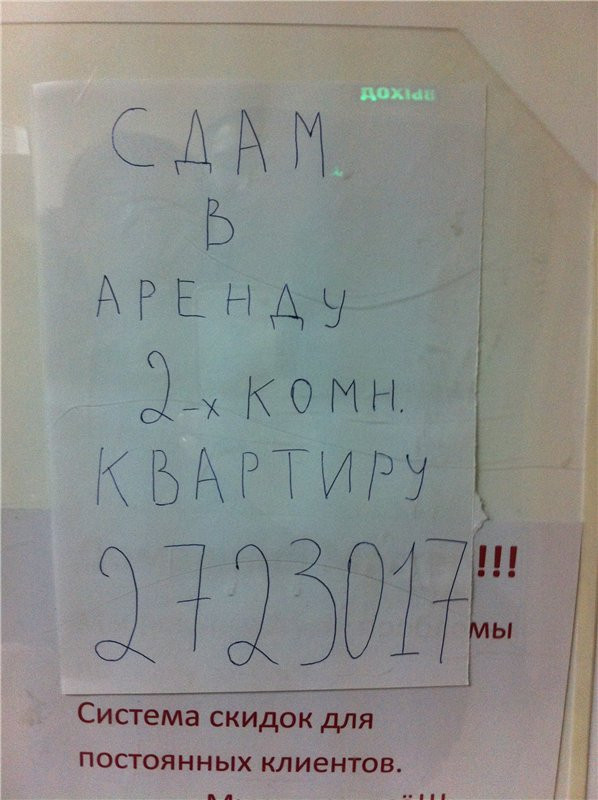 СДАМ
В
АРЕНДУ
2-х КОМН.
КВАРТИРУ
2723017
!!!
мы
Система скидок для
постоянных клиентов.